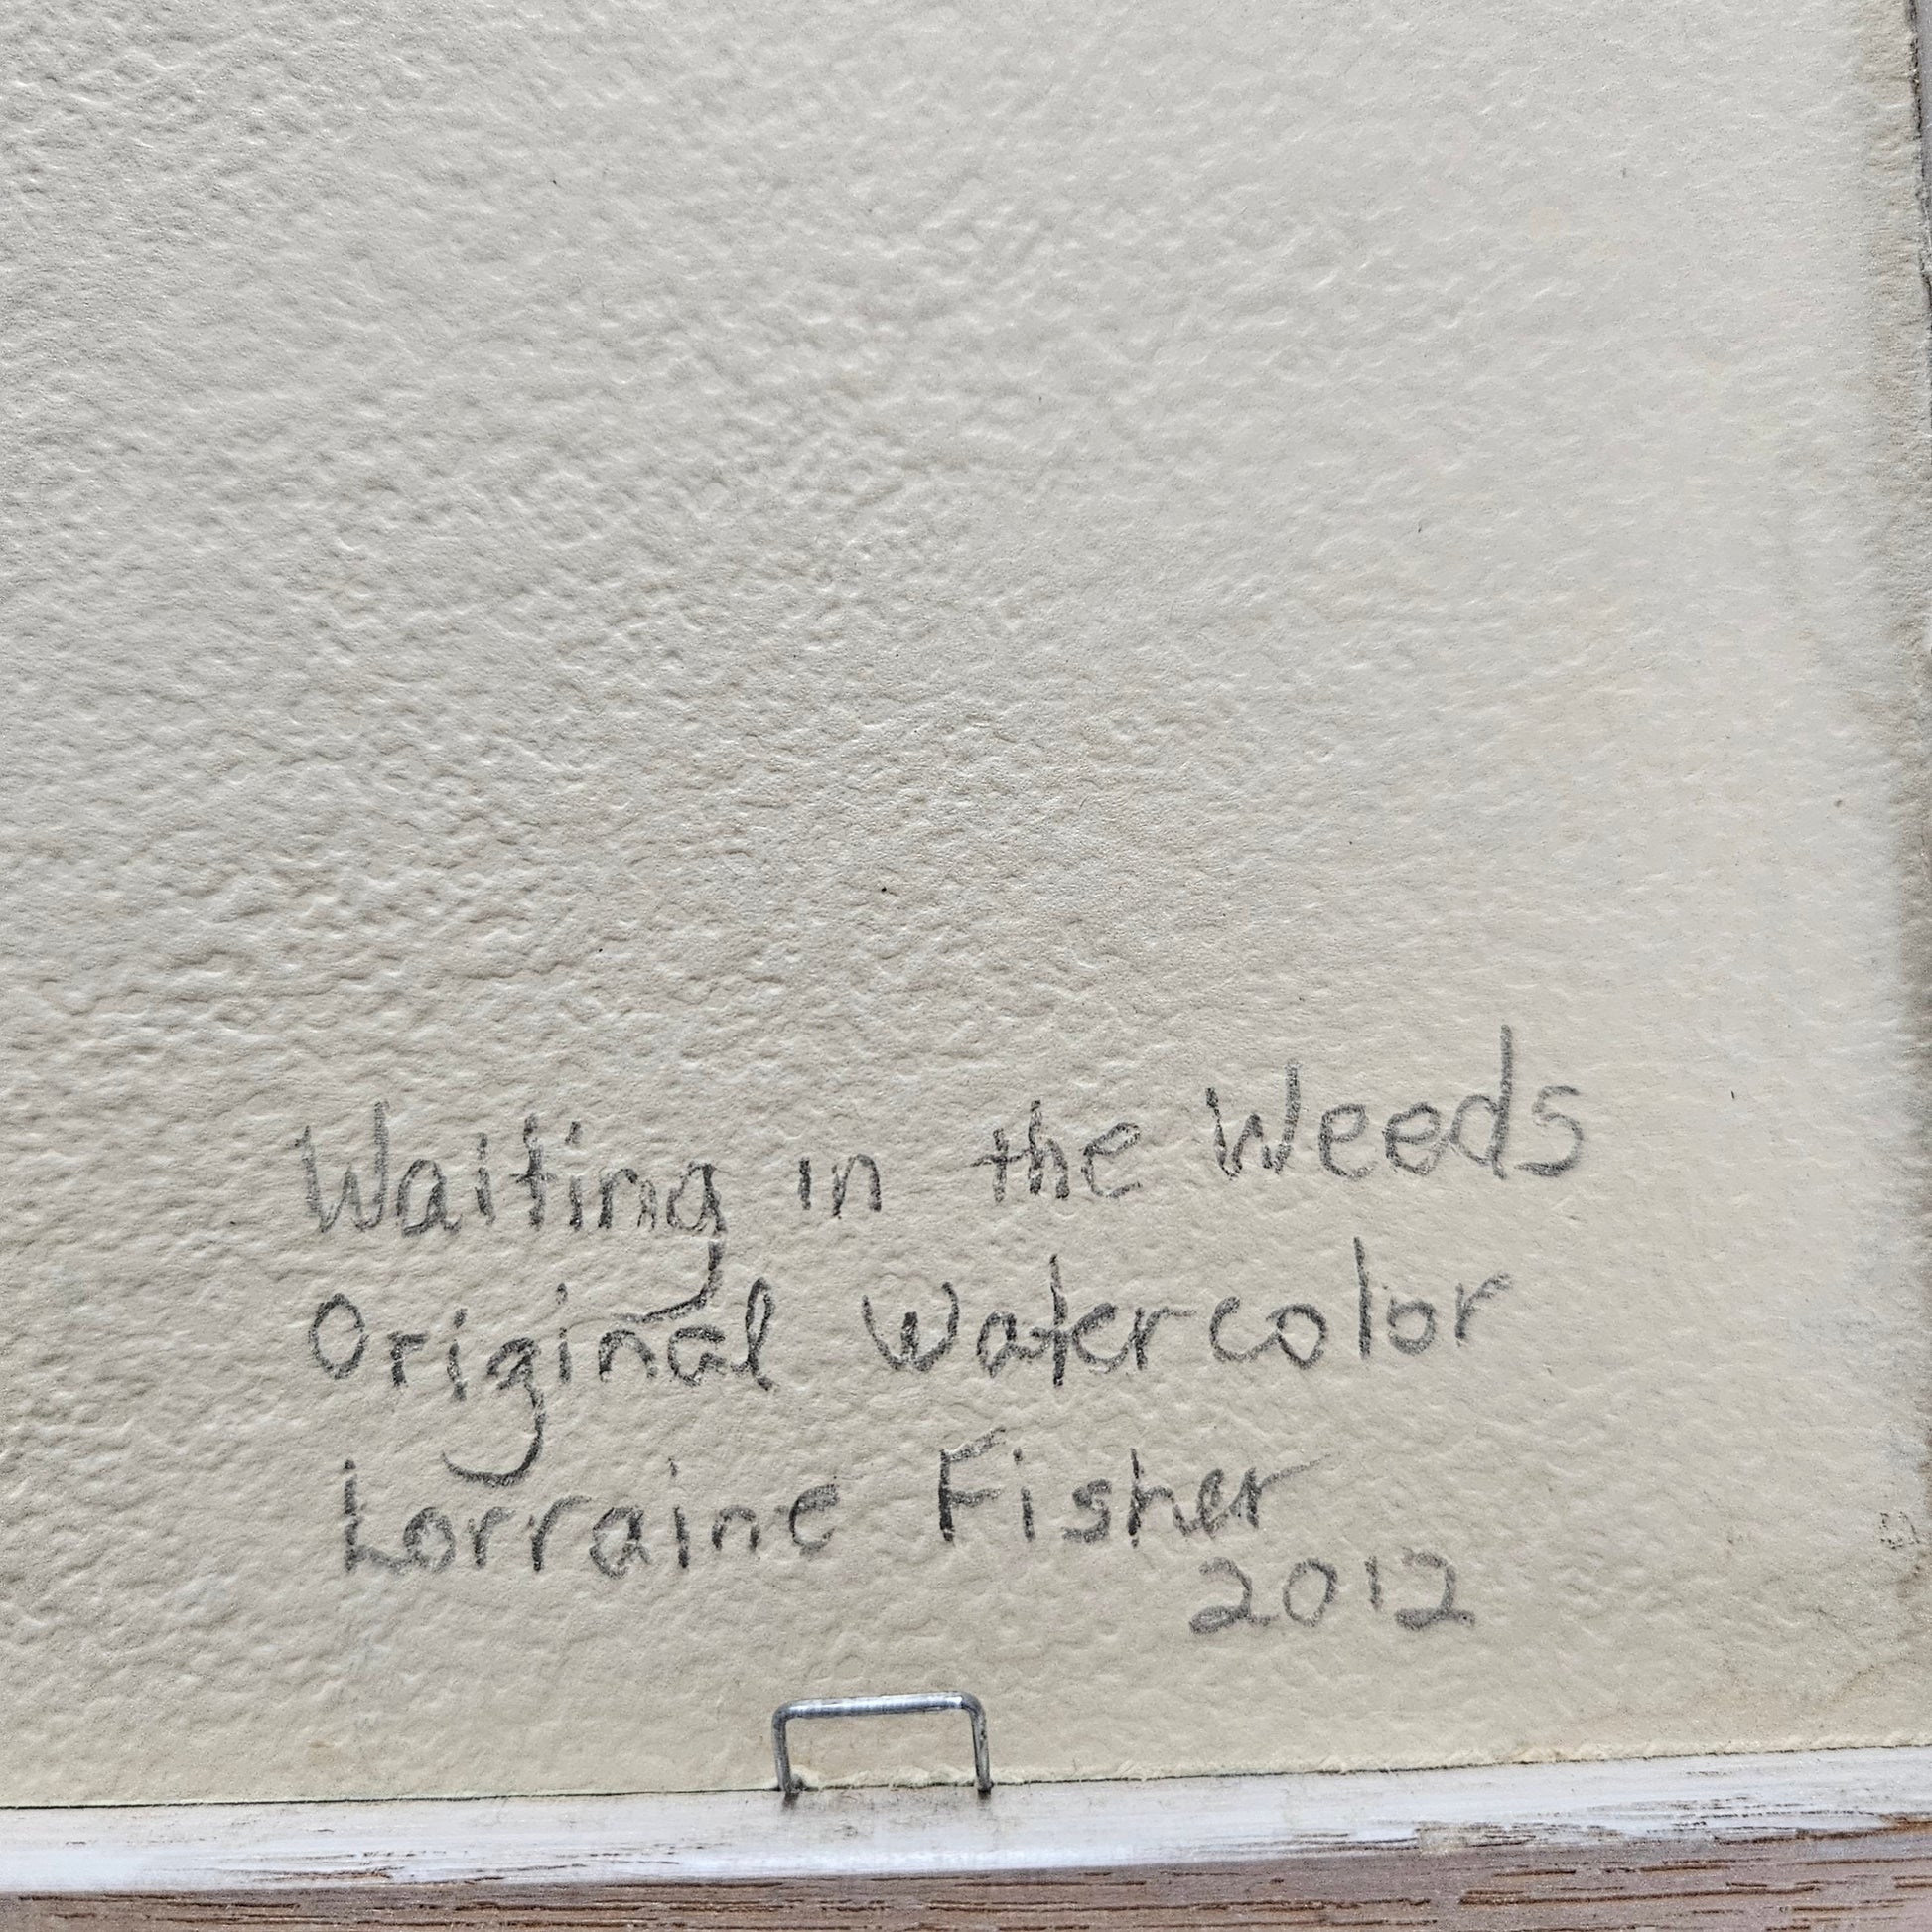 Waiting in the Weeds
Original Watercolor
Lorraine Fisher
2012